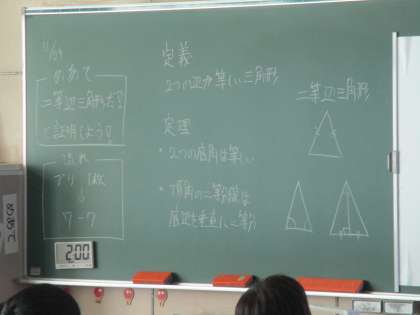 11/29
めあて
二等辺三角形だ!
と証明しよう!!
流れ
プリ 1枚
↓
ワーク
2:00
定義
2つの辺が等しい三角形
定理
・2つの底角は等しい
・頂角の二等分線は
底辺を垂直に二等分
二等辺三角形